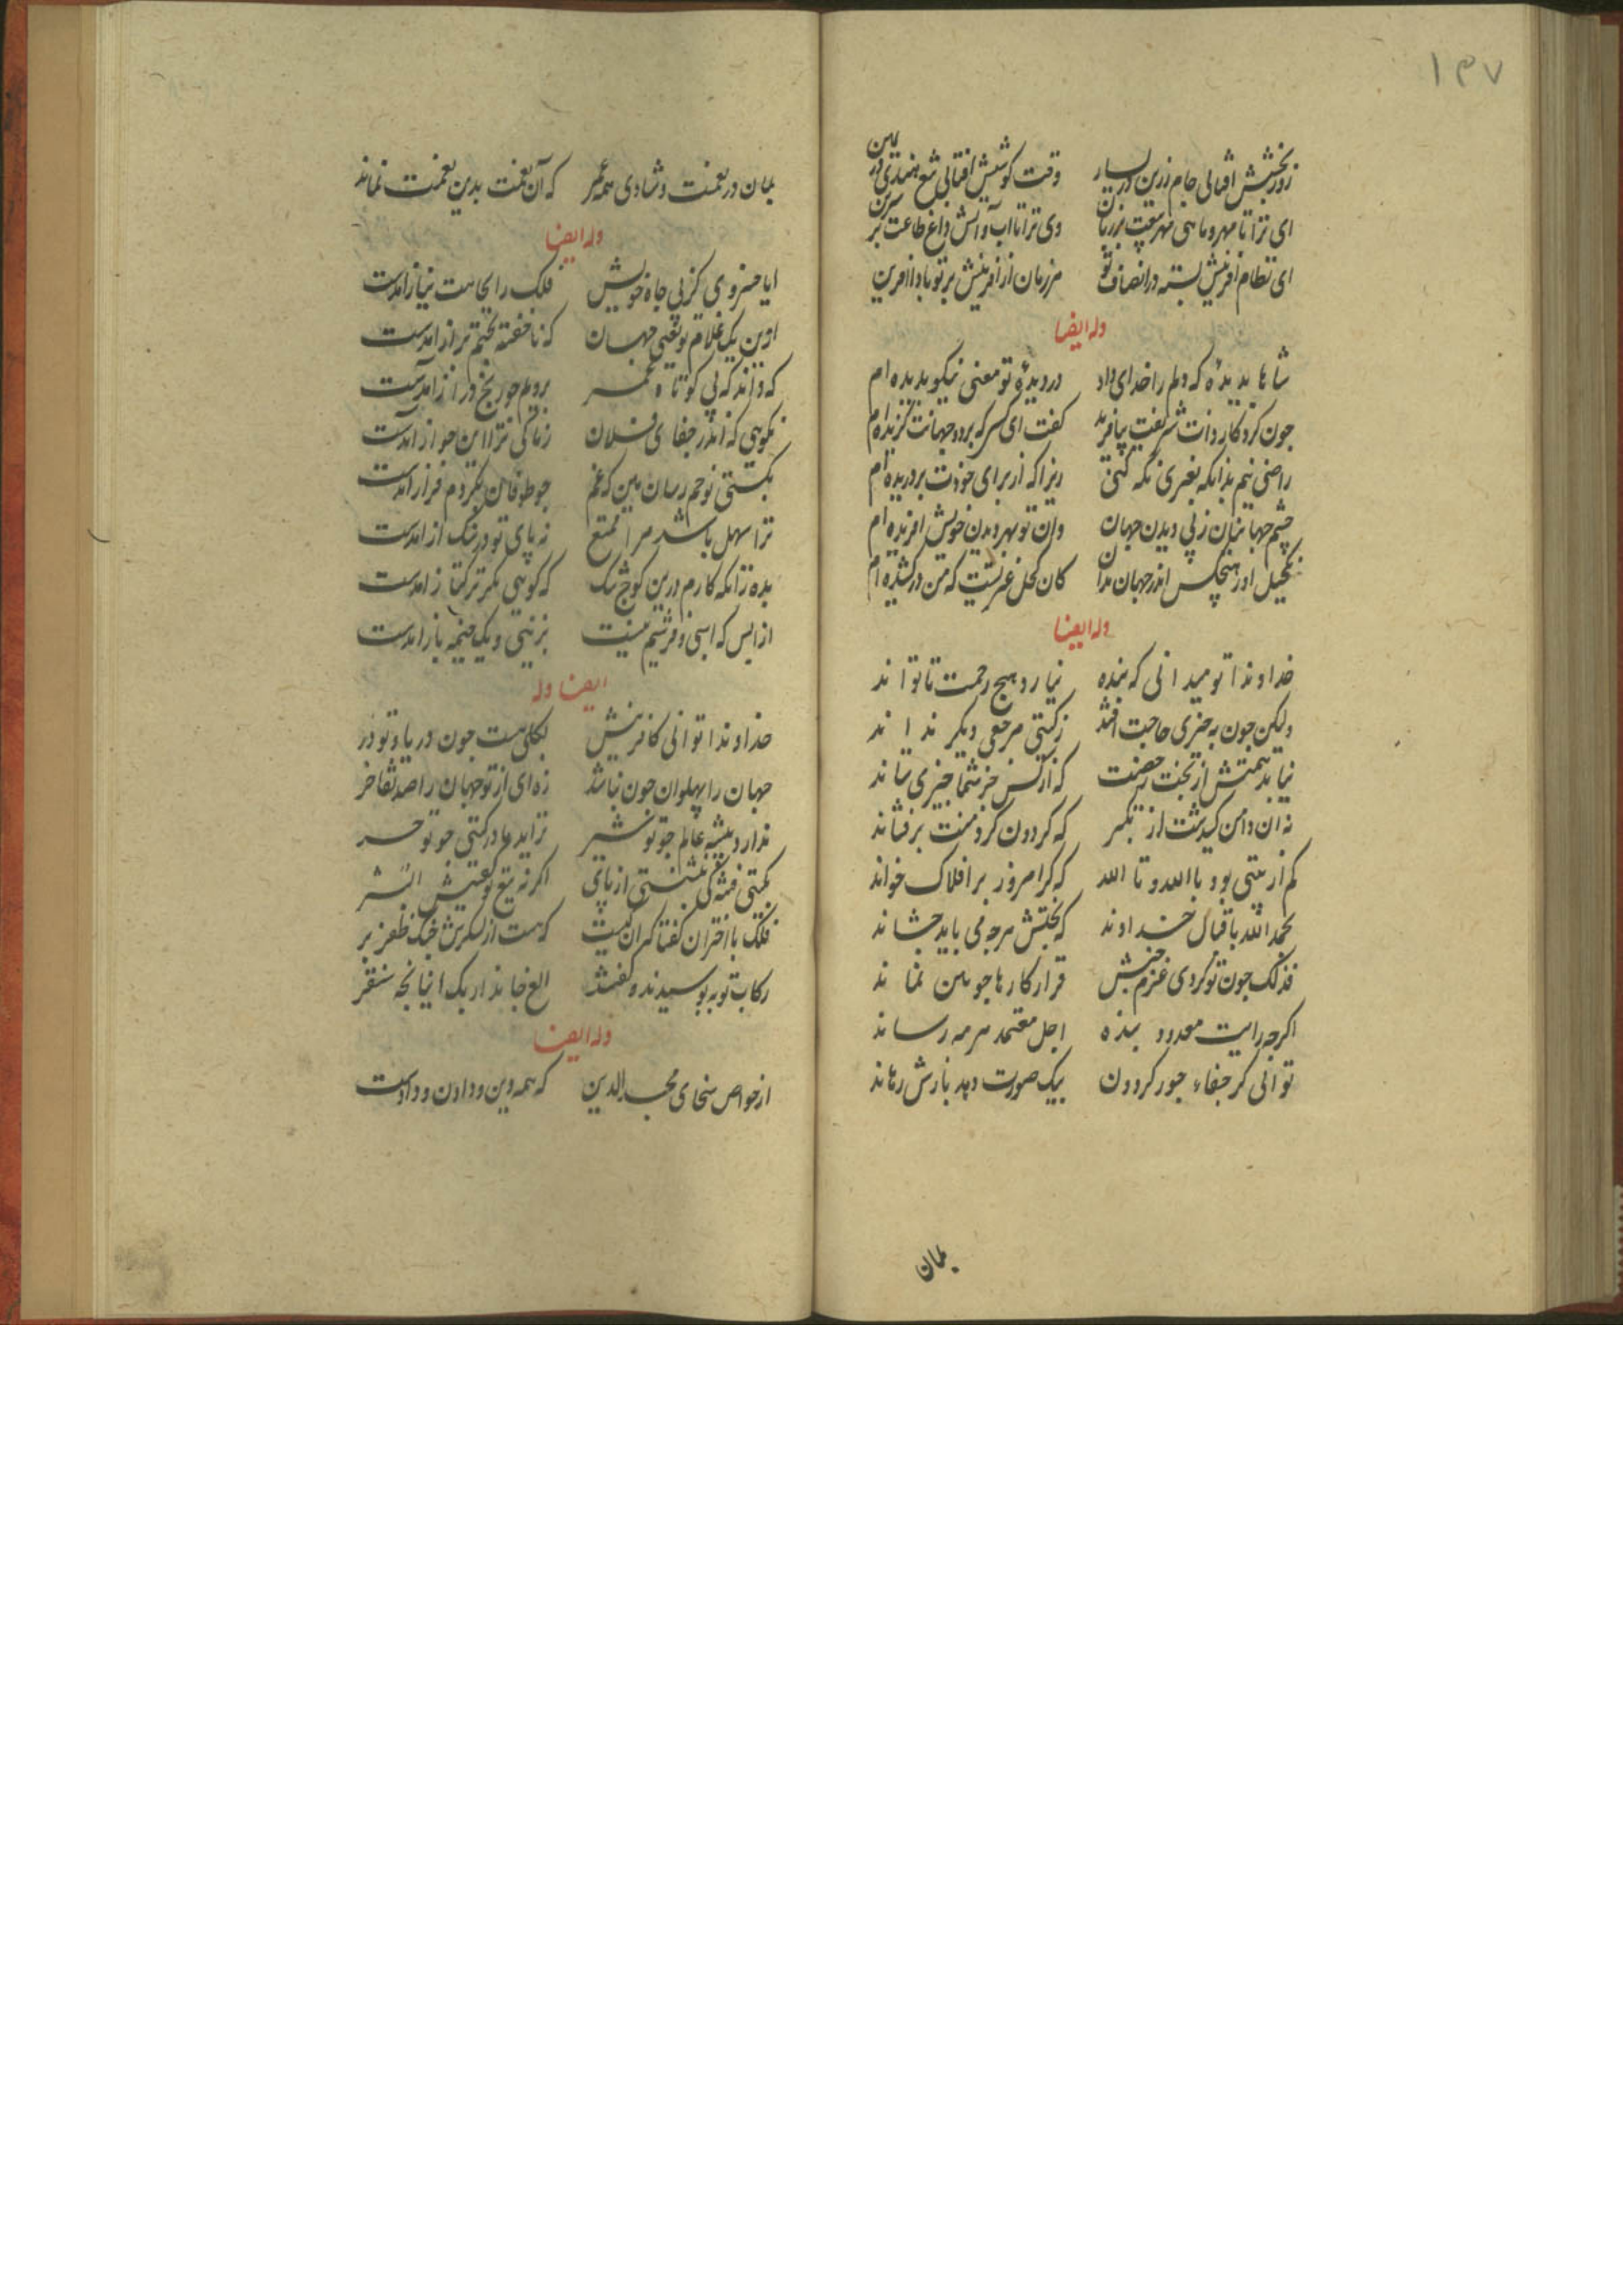 ۱۳۷
روز بخشش افتابی جام زرین در یسار وقت کوشش افتابی تیغ هندی در یمین
ای ترا تا مهر و ماهی مهر بیعت بر زبان وی ترا تا اب و اتش داغ طاعت بر سرین
ای نظام افرینش بسته در انصاف تو هر زمان از افرینش بر تو باد افرین
وله ایضا
شاها بدیدۀ که دلم را خدای داد در دیدۀ تو معنی نیکو بدیده ام
جون کردکار ذات شریفت بیافرید کفت ای کسی که بر دو جهانت کزیده ام
راضی نیم بدانکه بغیری نکه کنی زیرا که از برای خودت بروریده ام
چشم جهانیان ز پی دیدن جهان وان تو بهر دیدن خویش افریده ام
تکحیل او ز هیچکس اندر جهان مدان کان کحل غیرتیست که من درکشیده ام
وله ایضا
خداوندا تو میدانی که بنده نیارد هیچ زحمت تا تواند
ولیکن جون به چیزی حاجت افتد ز کیتی مرجعی دیکر نداند
نیابد همتش از بخت رخصت که از کس جز شما جیزی ستاند
نه ان دامن کشیدست از تکبر که کردون کرد منت برفشاند
کم از بیتی بود بالله و تالله که کر امروز بر افلاک خواند
بحمدالله باقبال خداوند که بختش هرجه می باید جشاند
فذلک جون تو کردی عزم جنبش قرار کارها جونین نماند
اکرجه رایت معدود بنده اجل معتمد هرمه رساند
توانی کز جفاء جور کردون بیک صورت دبه بازش رهاند
بمان
بمان در نعمت و شادی همه عمر که آن نعمت بدین نعمت نماند
وله ایضا
ایا خسروی کز پی جاه خویش فلک را بجاهت نیاز امدست
ازین یک غلام تو یعنی جهان که ناخفته بختم براز امدست
که داند که پی کوتاه عمر بروم جو رنج دراز امدست
نکویی که اندر جفای فلان زمانی ترا این جواز امدست
بکشتی نوحم رسان هین که غم جو طوفان بکردم فراز امدست
ترا سهل باشد مرا ممتنع نه پای تو در سنک از امدست
بده زانکه کارم درین کوج تنک که کویی مکر ترکتاز امدست
از ابس که اسبی و فرشیم نیست بزینی و یک خیمه باز امدست
ایضا وله
خداوندا تو انی کافرینش بکلی هست جون دریا و تو در
جهان را پهلوان جون تو نباشد زه ای از تو جهان را صد تفاخر
ندارد بیشه عالم جو تو شیر نزاید مادر کیتی جو تو حر
بکیتی فتنه کی بنشستی از پای اکر نه تیغ تو کفتیش التر
فلک با اختران کفتا که ان کیست که هست از لشکرش خیل ظفر پر
رکاب تو ببوسیدند و کفتند الغ جاندار بک اینانجه سنقر
وله ایضا
از خواص سخای مجدالدین که همه دین و دادن و دادست